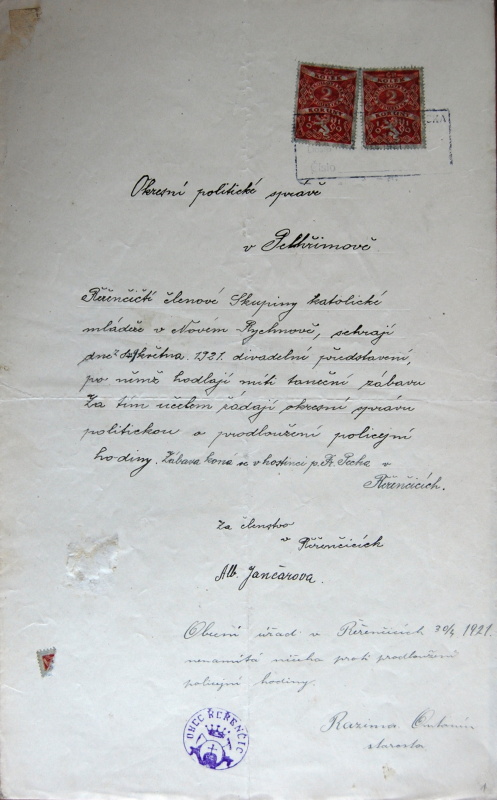 KOLEK
2
KORUNY
KOLEK
2
KORUNY
Okresní politické správě
v Pelhřimově
Řeřenčičtí členové Skupiny katolické
mládeže v Novém Rychnově, sehrají
dne května 1921. divadelní představení,
po němž hodlají míti taneční zábavu
Za tím účelem žádají okresní správu
politickou o prodloužení policejní
hodiny. Zábava koná se v hostinci p. Fr. Pecha v
Řeřenčicích.
Za členstvo
v Řeřenčicích
Alb. Jančarova.
Obecní úřad v Řeřenčicích 30/4 1921.
nenamítá ničeho proti prodloužení
policejní hodiny.
OBEC ŘEŘENČIC
Razima Antonín
starosta